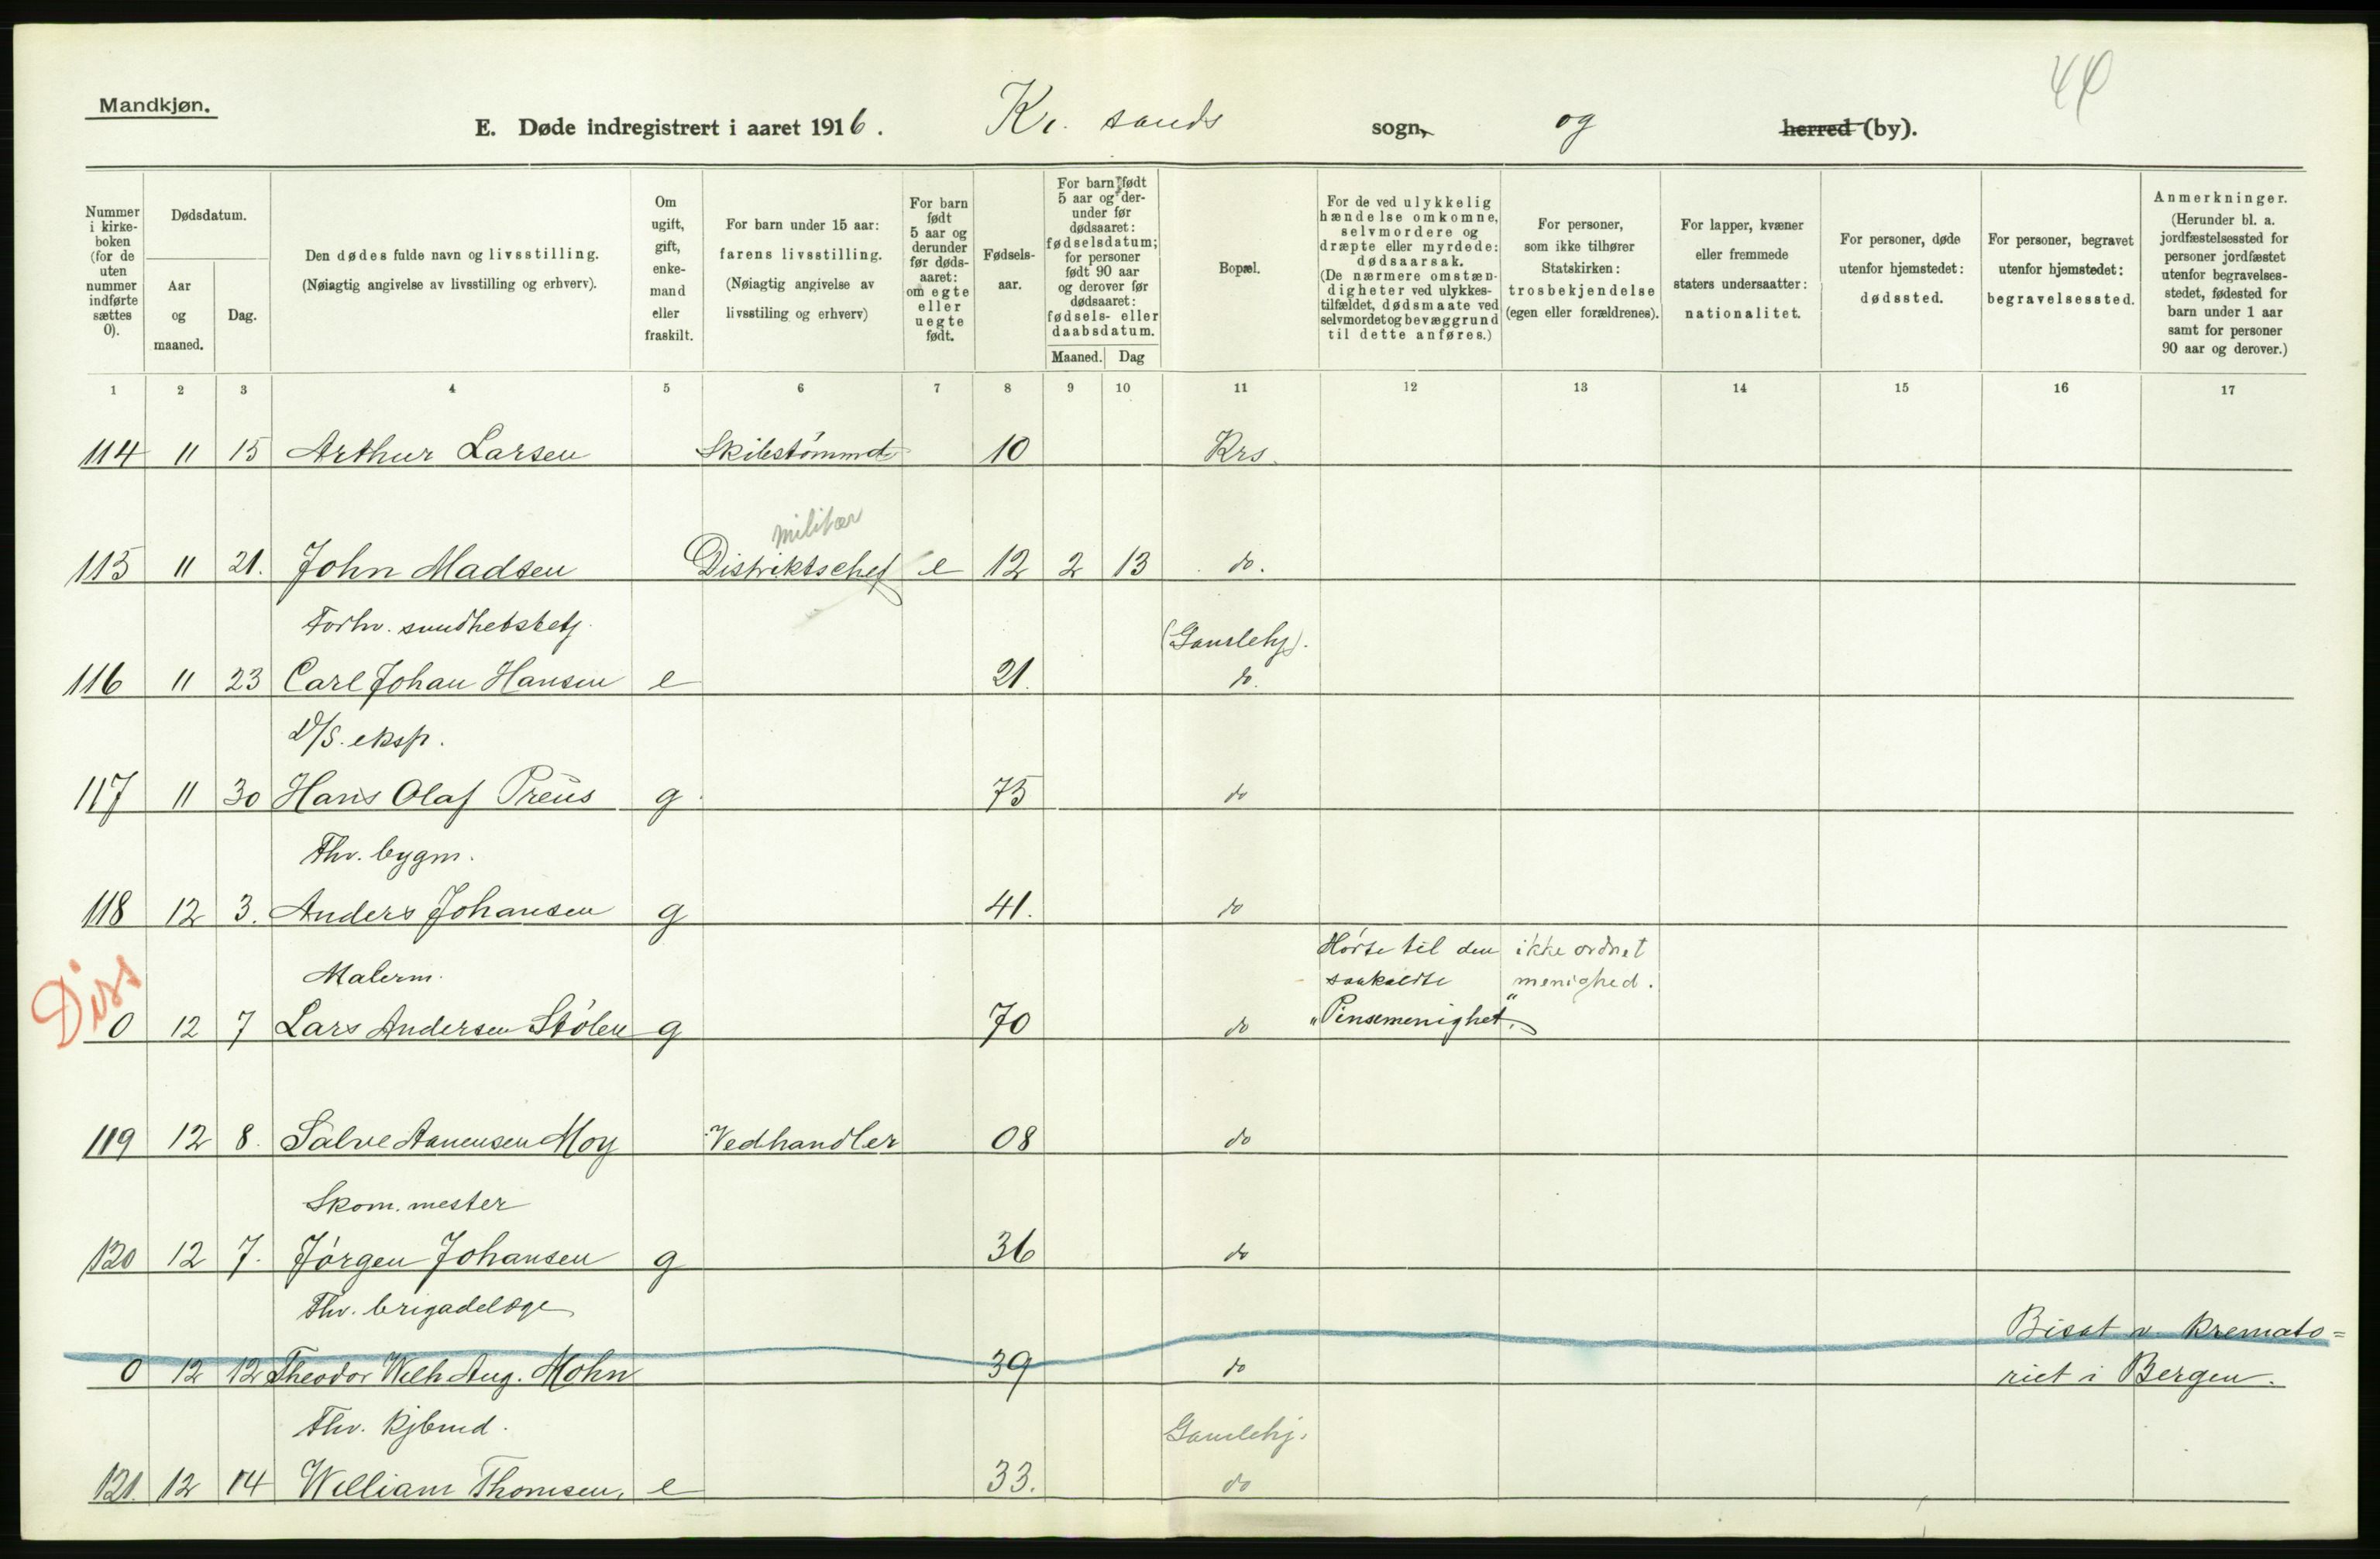 46
Mandkjøn.
E. Døde indregistrert i aaret 1916. Kr. sands sogn, og herred (by).
Nummer i kirkeboken (for de uten nummer indførte sættes 0).
Dødsdatum.
Aar og maaned.
Dag.
Den dødes fulde navn og livsstilling.
(Nøiagtig angivelse av livsstilling og erhverv).
Om ugift, gift, enkemand eller fraskilt.
For barn under 15 aar: farens livsstilling.
(Nøiagtig angivelse av livsstiling og erhverv)
For barn født 5 aar og derunder før dødsaaret: om egte eller uegte født.
Fødselsaar.
For barn født 5 aar og derunder før dødsaaret: fødselsdatum; for personer født 90 aar og derover før dødsaaret: fødsels- eller daabsdatum.
Maaned. Dag
Bopæl.
For de ved ulykkelig hændelse omkomne, selvmordere og dræpte eller myrdede: dødsaarsak.
(De nærmere omstændigheter ved ulykkestilfældet, dødsmaate ved selvmordet og bevæggrund til dette anføres.)
For personer, som ikke tilhører Statskirken: trosbekjendelse (egen eller forældrenes).
For lapper, kvæner eller fremmede staters undersaatter: nationalitet.
For personer, døde utenfor hjemstedet: dødssted.
For personer, begravet utenfor hjemstedet: begravelsessted.
Anmerkninger.
(Herunder bl. a. jordfæstelsessted for personer jordfæstet utenfor begravelsesstedet, fødested for barn under 1 aar samt for personer 90 aar og derover.)
1 2 3 4 5 6 7 8 9 10 11 12 13 14 15 16 17
114 11 15 Arthur Larsen Skibstømmd 10 Krs.
militær
115 11 21. John Madsen Distriktschef e 12 2 13 do.
Forhv. sundhetsbetj. (Gamlehj).
116 11 23 Carl Johan Hansen e 21. do.
D/S. eksp.
117 11 30 Hans Olaf Preus g 75 do
Fhv. bygm.
118 12 3. Anders Johansen g 41. do
Diss
Malerm.
Hørte til den ikke ordnet
saakaldte menighed.
0 12 7 Lars Andersen Stölen g 70 do "Pinsemenighet".
119 12 8. Salve Aanensen Moy Vedhandler 08 do
Skom. mester
120 12 7. Jörgen Johansen g 36 do
Fhv. brigadelæge Bisat v. kremato=
0 12 12 Theodor Wilh Aug. Mohn 39 do riet i Bergen.
Fhv. kjbmd. Gamlehj.
121. 12 14 William Thomsen, e 33. do